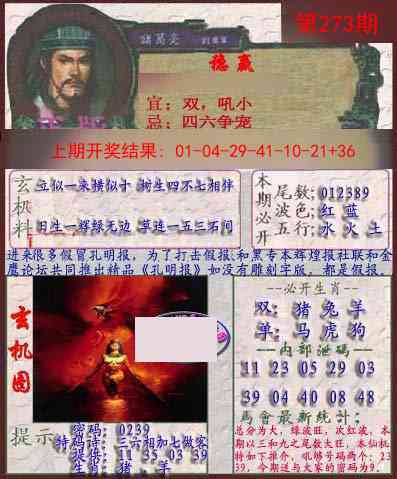 第273期
諸葛亮
稳赢
宜：双，吼小
忌：四六争宠
上期开奖结果：01-04-29-41-10-21+36
玄机料
立似一来横似十 树生四不七相伴
日生一辉绿无边 草连一五三石间
本期必开
尾数：012389
波色：红 蓝
五行：水 火 土
进来很多假冒孔明报，为了打击假报，和黑专本辉煌报社联和金
鹰论坛共同推出精品《孔明报》如没有雕刻字版，都是假报。
玄机图
提示
密码：0239
特码诗：三六相加七做客
提供：11 35 03 39
生肖：猪、羊
--必开生肖--
双：猪兔羊
单：马虎狗
--内部泄码--
11 23 05 29 03
39 04 40 08 48
馬會最新统计：
总分为大，绿波旺，次红波，本
期以三和九之尾数大旺，本仙机
特如下推介，吼够号码两个：23
39，今期送与大家的密码为9.